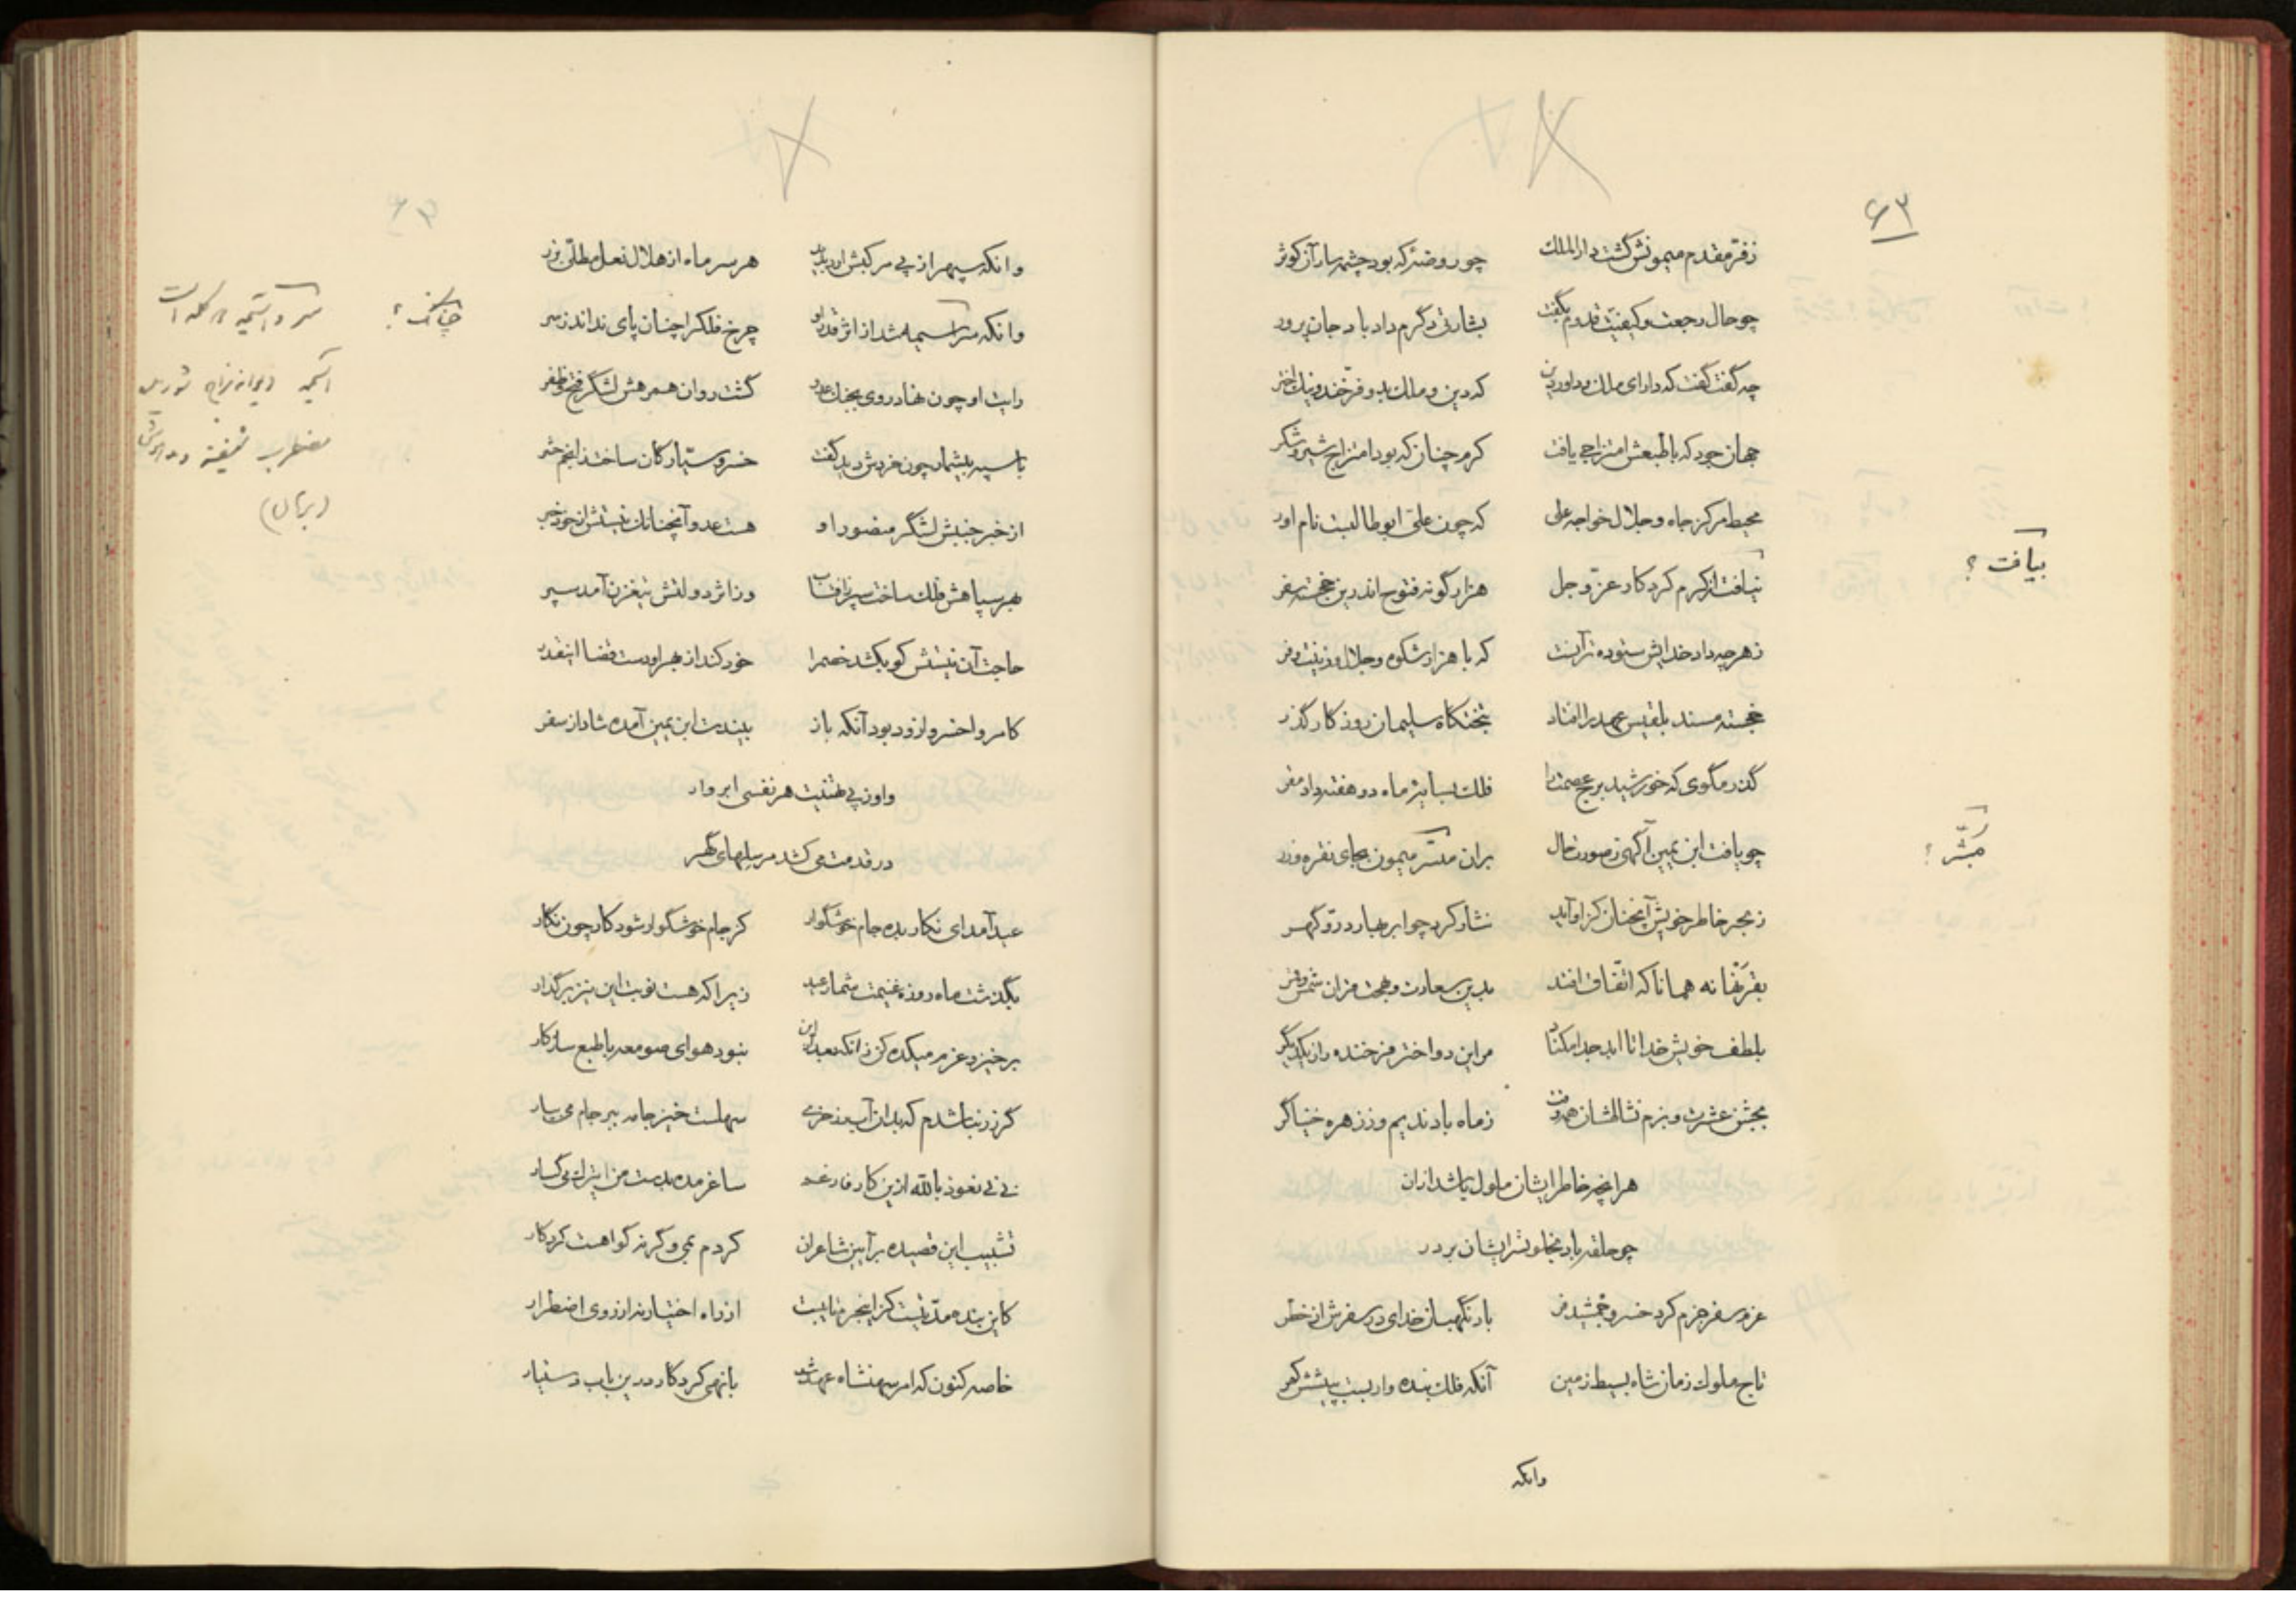 ۶۳
ز فر مقدم میمونش گشت دارالملك چو روضهٔ که بود چشمه سار آن کوثر
چو حال رجعت و کیفیت قدوم بگفت بشارتی دگرم داد باد جان پرور
چه گفت گفت که دارای ملك و داور دین که دین و ملك بدو فرخند و نیك اختر
جهان جود که با طبعش امتزاجی یافت کرم چنان که بود امتزاج شیر و شکر
محیط مرکز جاه و جلال خواجه علی که چون علی ابوطالبست نام اور
نیافت از کرم کردکار عز و جل هزار گونه فتوح اندرین خجسته سفر
ز هر چه داد خدایش ستوده تر آنست که با هزار شکوه و جلال و زینت و فر
خجسته مسند بلقیس عهد را افتاد بتختگاه سلیمان روزکار گذر
گذر مگوی که خورشید برج عصمت را فلك بسایهٔ ماه دو هفته داد مقر
چو یافت ابن یمین آگهی ز صورت حال بران مبشر میمون بجای نقره و زر
ز بحر خاطر خویش آنچنان کزاو آید نثار کرد چو ابر بهار در و گهر
بقر نها نه همانا که اتفاق افتد بدین سعادت و بهجت قران شمس و قمر
بلطف خویش خدایا ابد جدا مکناد مر این دو اختر فرخنده را ز یکدیگر
بجشن عشرت و بزم نشاطشان همه وقت ز ماه باد ندیم و ز زهره خنیاگر
هر آنچه خاطر ایشان ملول باشد ازان
چو حلقه باد بخلوتسرایشان بر در
عزم سفر جزم کرد خسرو جمشید فر باد نگهبان خدای در سفرش از خطر
تاج ملوك زمان شاه بسیط زمین آنکه فلك بنده وار بست به پیشش کمر
وانکه
بیافت ؟
مبشّر ؟
وانکه سپهر از پی مرکبش آرد پدید هر سر ماه از هلال نعل مطلی بزر
وانکه سراسیمه شد از اثر قدر او چرخ فلك را چنان پای نداند ز سر
رایت او چون نهاد روی بجنك عدو گشت روان همرهش لشگر فتح و ظفر
با سپه بیشمار چون خردش دید گفت خسرو سیارکان ساخت ز انجم حشر
از خبر جنبش لشگر منصور او هست عدو آنچنانك نیستش از خود خبر
بهر سپاهش فلك ساخت سپر ز آفتاب وز اثر دولتش تیغ زن آمد سپر
حاجت آن نیستش کو بکشد خصم را خود کند از بهر او دست قضا اینقدر
کامروا خسروا زود بود آنکه باز بیندت ابن یمین آمده شاد از سفر
واو ز پی تهنیت هر نفسی ابر وار
در قدمت می کشد مرسلهای گهر
عید آمد ای نگار بده جام خوشگوار کز جام خوشگوار شود کار چون نگار
بگذشت ماه روزه غنیمت شمار عید زیرا که هست نوبت این نیز برگذار
برخیز و عزم میکده کن زانکه بعد ازین نبود هوای صومعه با طبع سازکار
گر زر نباشدم که بدان آب رز خری سهلست خیز جامه ببر جام می بیار
نی نی نعوذ بالله ازین کار فارغم ساغر مده بدست من ای ترك می گسار
تشبیب این قصیده بر آیین شاعران کردم بمی وگرنه گواهست کردکار
کاین بنده مدتیست کز اینجرم تایبست از راه اختیار نه از روی اضطرار
خاصه کنون که امر شهنشاه عهد شد با نهی کردکار درین باب دستیار
چنانك ؟